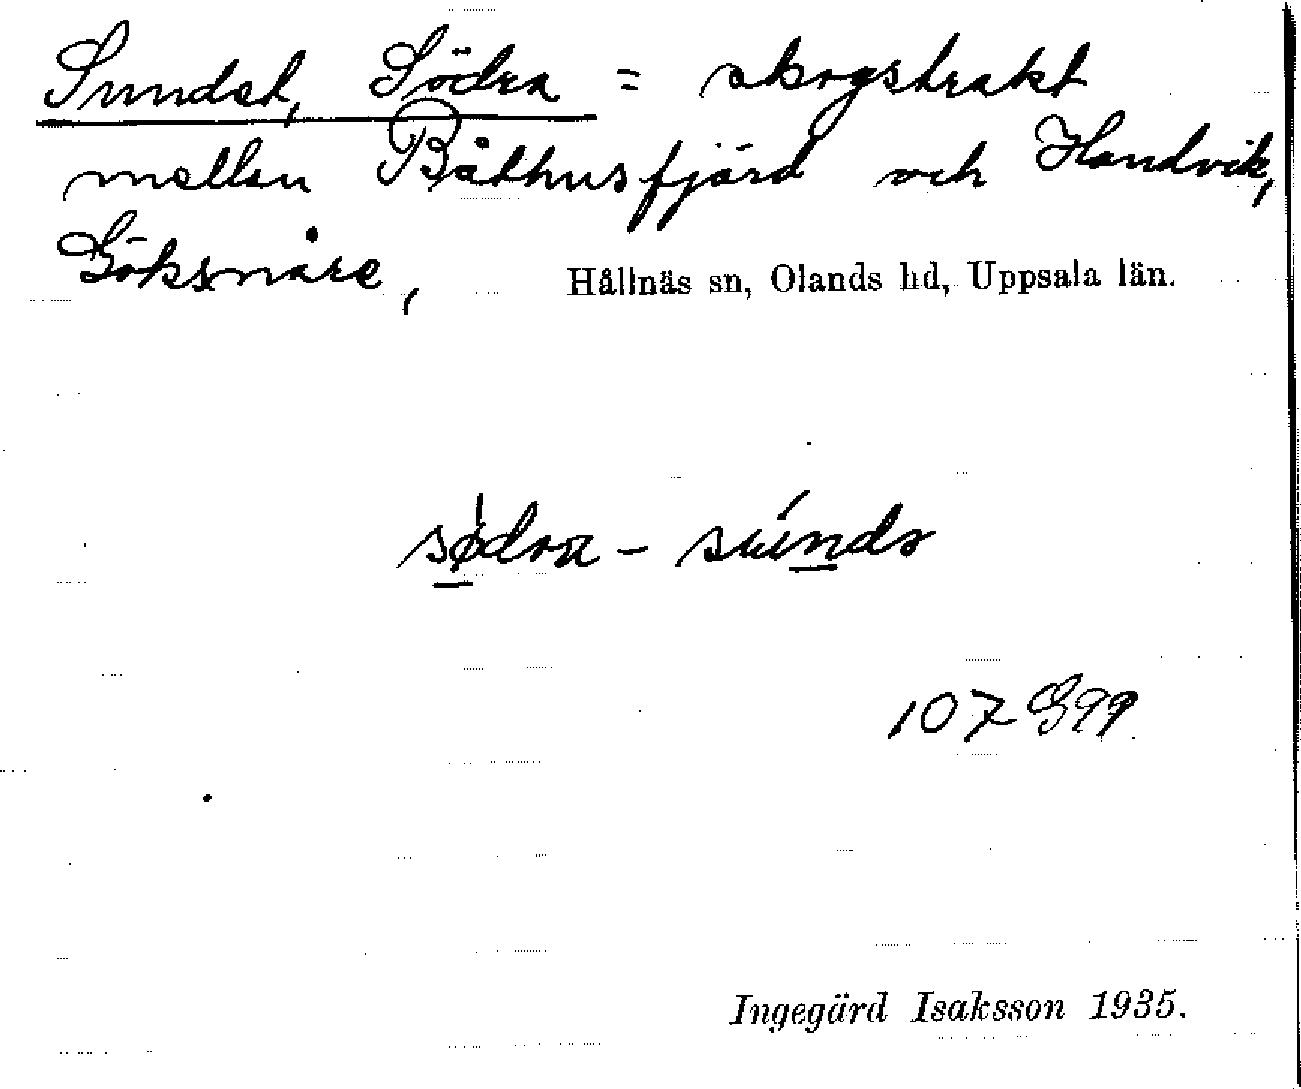 Sundet, Södra = skogstrakt
mellan Båthusfjärd och Handvik,
Göksnåre, Hållnäs sn, Olands hd, Uppsala län.
södra - súndə
107 G99
Ingegärd Isaksson 1935.